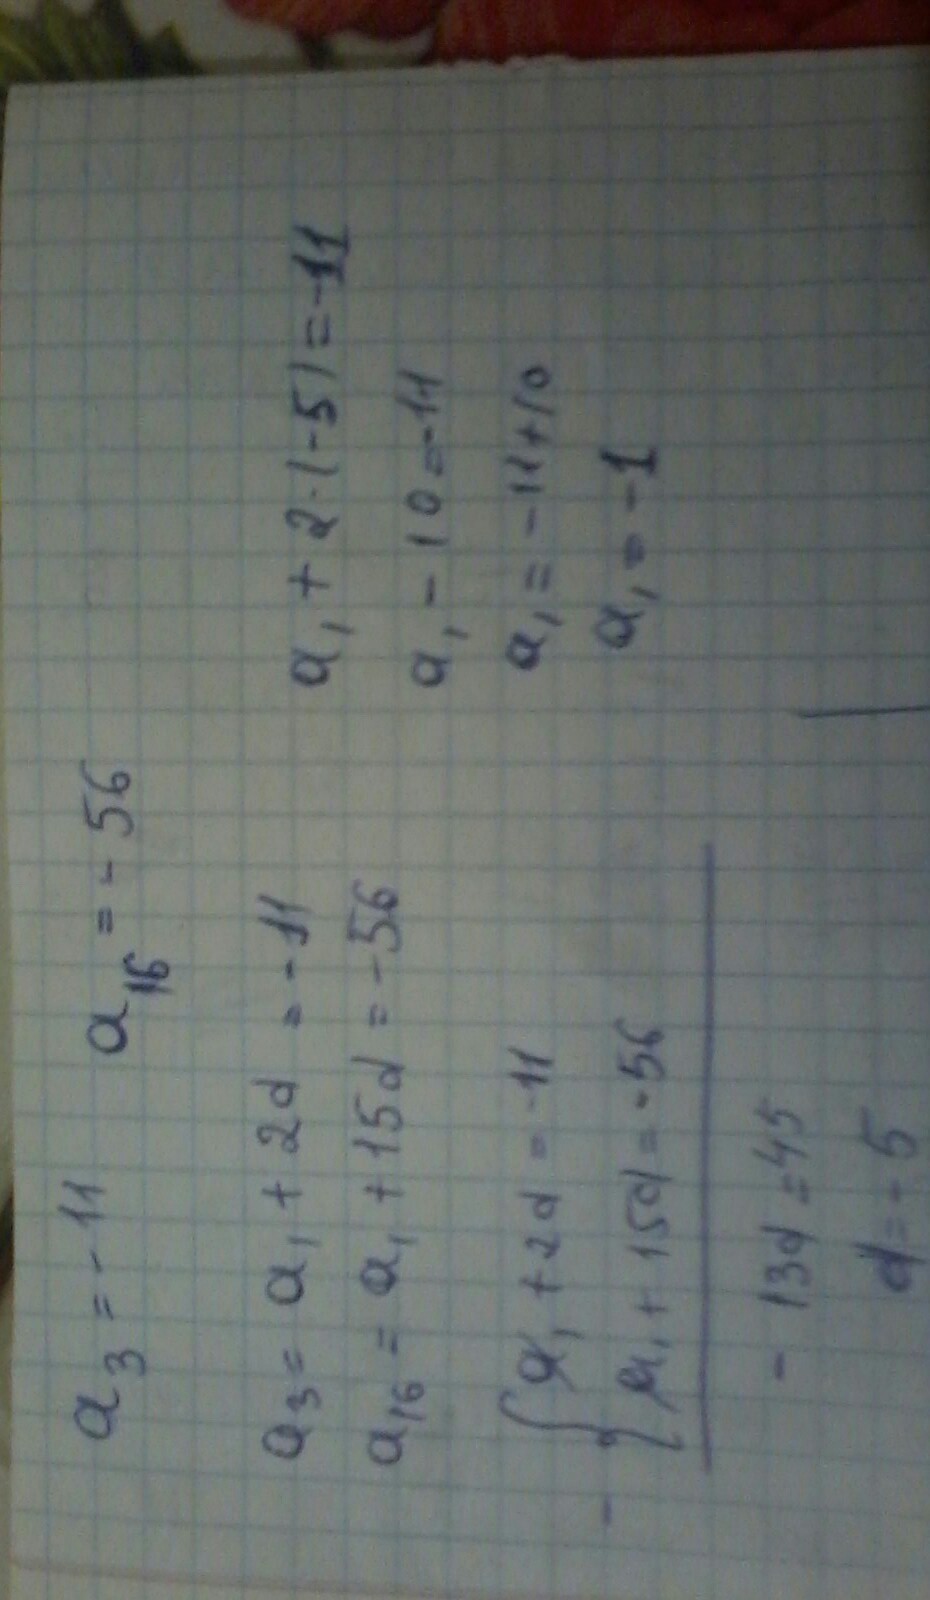 a₃ = -11 a₁₆ = -56
a₃ = a₁ + 2d = -11
a₁₆ = a₁ + 15d = -56
- { a₁ + 2d = -11
a₁ + 15d = -56
- 13d = 45
d = -5
a₁ + 2·(-5) = -11
a₁ - 10 = -11
a₁ = -11 + 10
a₁ = -1